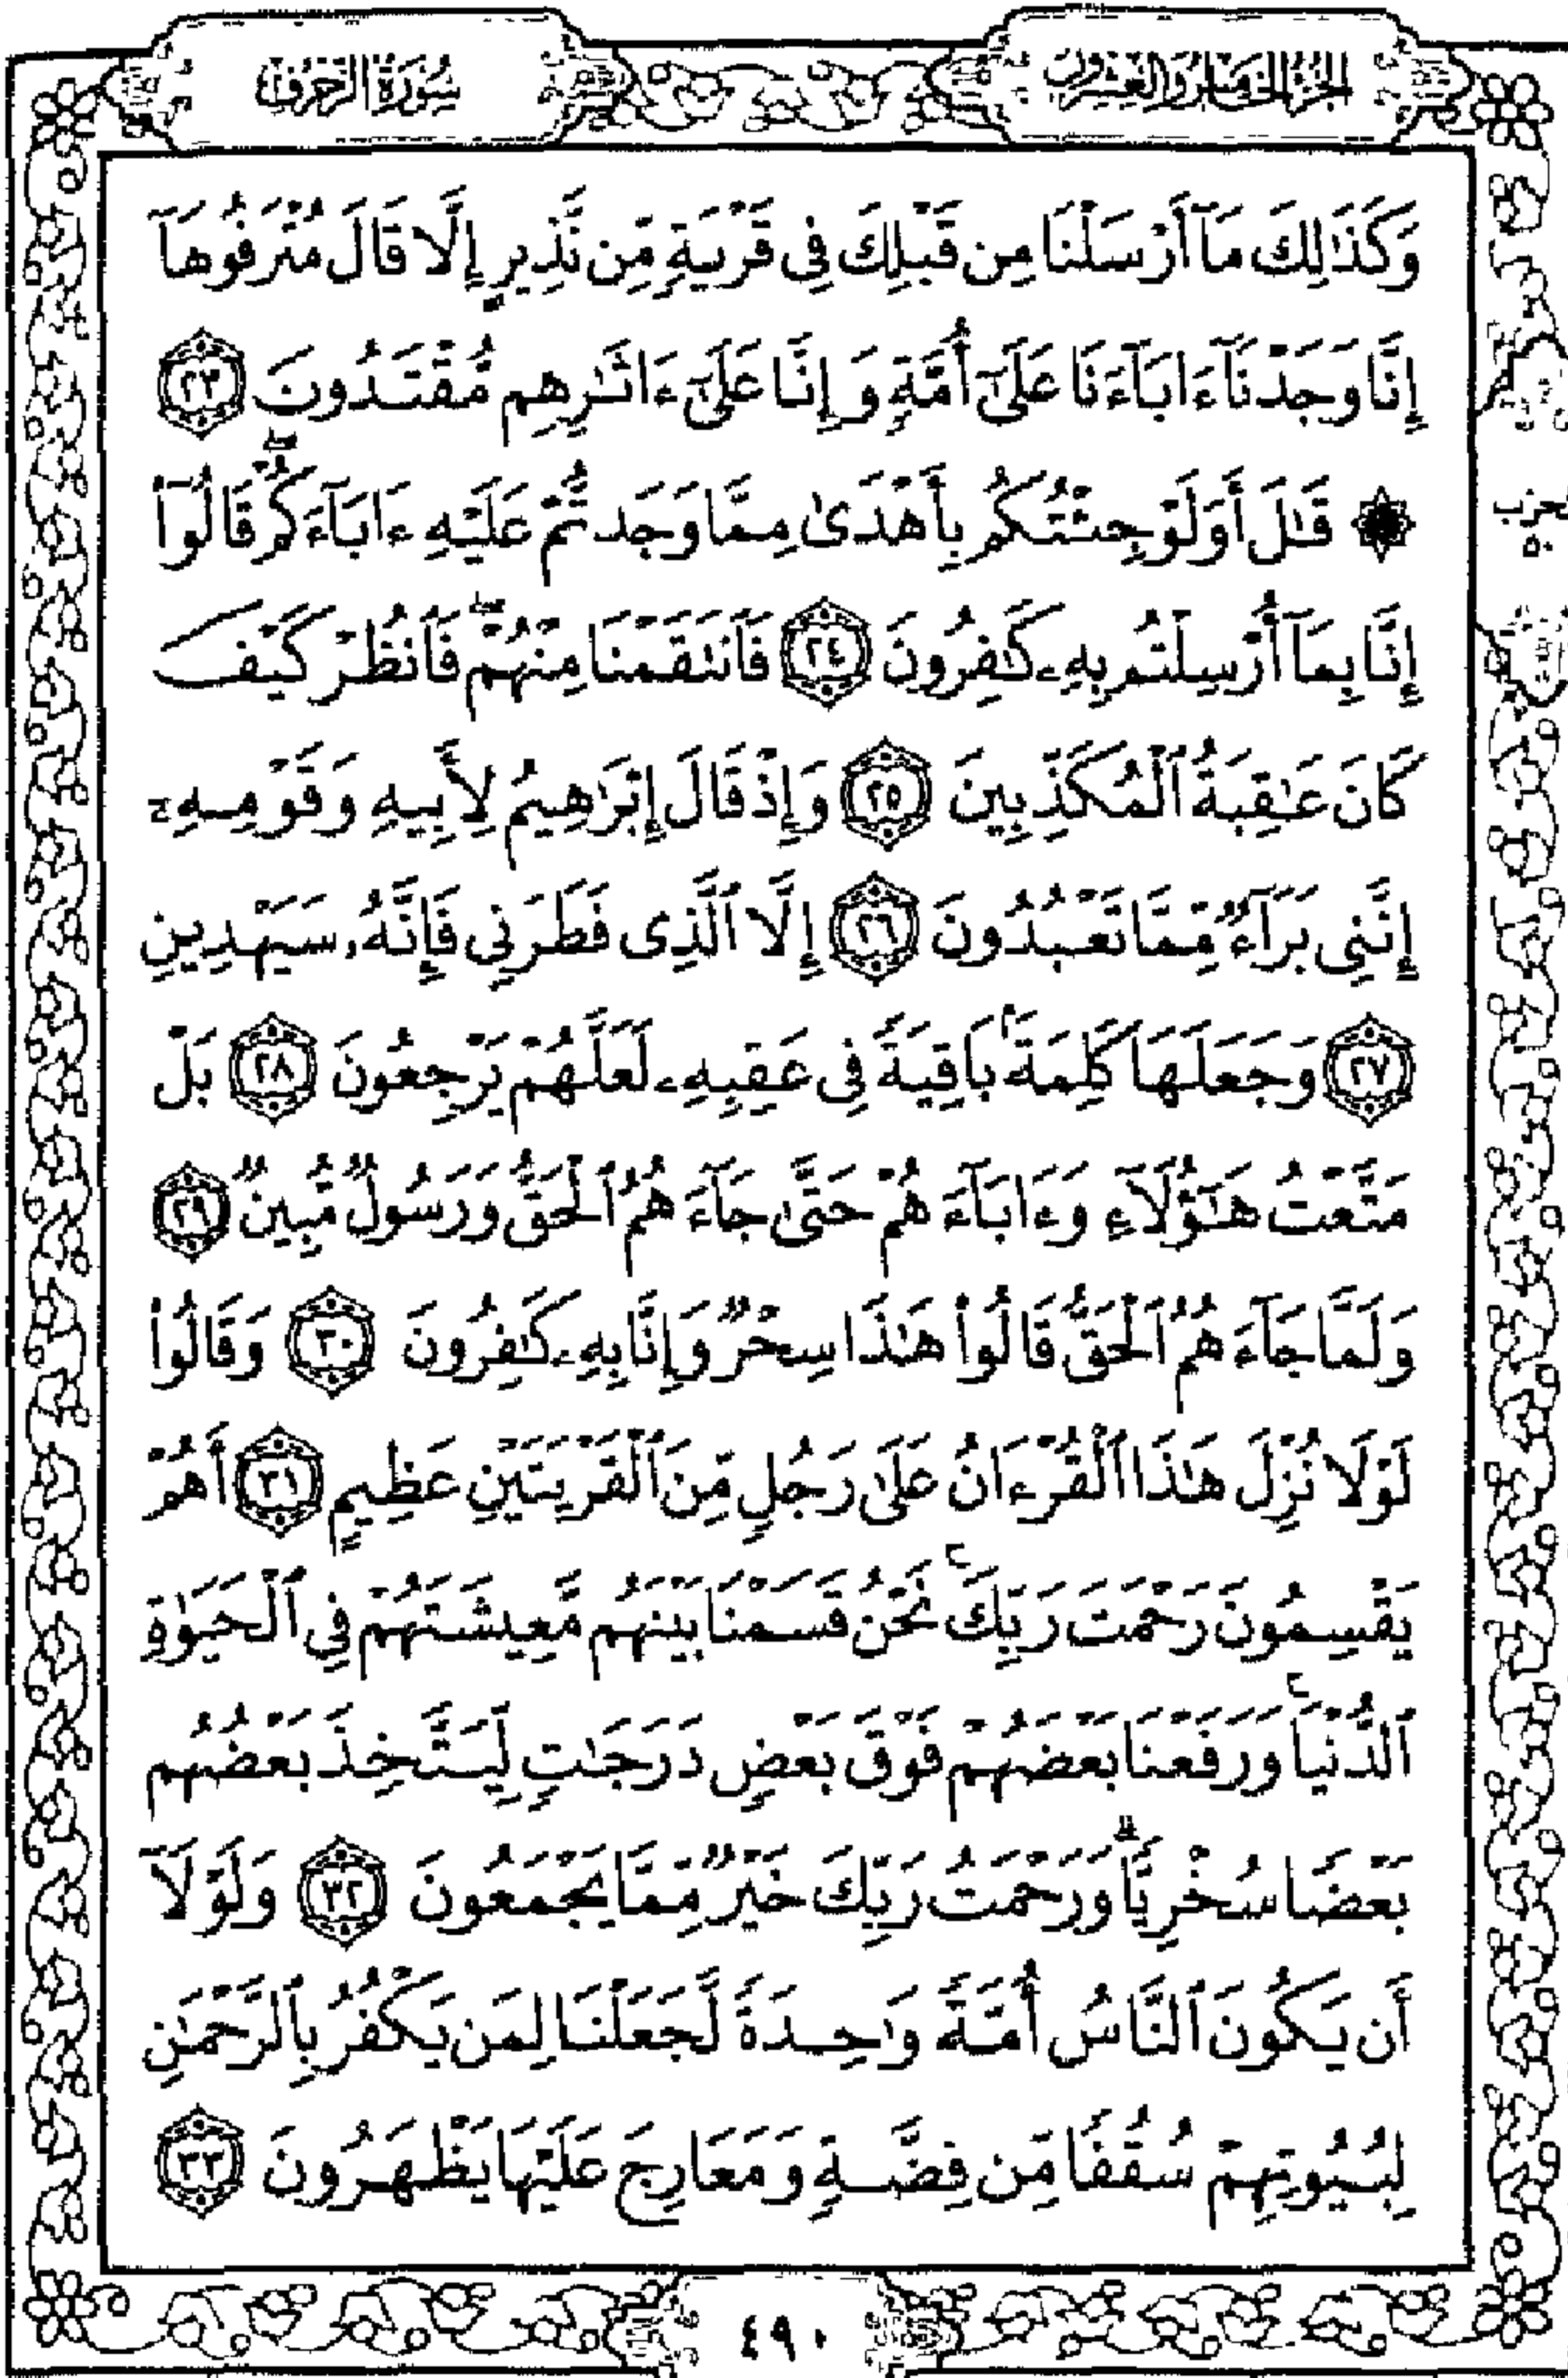 الجزء الخامس والعشرون سورة الزخرف
وَكَذَٰلِكَ مَآ أَرْسَلْنَا مِن قَبْلِكَ فِى قَرْيَةٍ مِّن نَّذِيرٍ إِلَّا قَالَ مُتْرَفُوهَآ
إِنَّا وَجَدْنَآ ءَابَآءَنَا عَلَىٰٓ أُمَّةٍ وَإِنَّا عَلَىٰٓ ءَاثَـٰرِهِم مُّقْتَدُونَ ٢٣
۞ قَـٰلَ أَوَلَوْ جِئْتُكُم بِأَهْدَىٰ مِمَّا وَجَدتُّمْ عَلَيْهِ ءَابَآءَكُمْ ۖ قَالُوٓا۟
إِنَّا بِمَآ أُرْسِلْتُم بِهِۦ كَـٰفِرُونَ ٢٤ فَٱنتَقَمْنَا مِنْهُمْ ۖ فَٱنظُرْ كَيْفَ
كَانَ عَـٰقِبَةُ ٱلْمُكَذِّبِينَ ٢٥ وَإِذْ قَالَ إِبْرَٰهِيمُ لِأَبِيهِ وَقَوْمِهِۦٓ
إِنَّنِى بَرَآءٌ مِّمَّا تَعْبُدُونَ ٢٦ إِلَّا ٱلَّذِى فَطَرَنِى فَإِنَّهُۥ سَيَهْدِينِ
٢٧ وَجَعَلَهَا كَلِمَةًۢ بَاقِيَةً فِى عَقِبِهِۦ لَعَلَّهُمْ يَرْجِعُونَ ٢٨ بَلْ
مَتَّعْتُ هَـٰٓؤُلَآءِ وَءَابَآءَهُمْ حَتَّىٰ جَآءَهُمُ ٱلْحَقُّ وَرَسُولٌ مُّبِينٌ ٢٩
وَلَمَّا جَآءَهُمُ ٱلْحَقُّ قَالُوا۟ هَـٰذَا سِحْرٌ وَإِنَّا بِهِۦ كَـٰفِرُونَ ٣٠ وَقَالُوا۟
لَوْلَا نُزِّلَ هَـٰذَا ٱلْقُرْءَانُ عَلَىٰ رَجُلٍ مِّنَ ٱلْقَرْيَتَيْنِ عَظِيمٍ ٣١ أَهُمْ
يَقْسِمُونَ رَحْمَتَ رَبِّكَ ۚ نَحْنُ قَسَمْنَا بَيْنَهُم مَّعِيشَتَهُمْ فِى ٱلْحَيَوٰةِ
ٱلدُّنْيَا ۚ وَرَفَعْنَا بَعْضَهُمْ فَوْقَ بَعْضٍ دَرَجَـٰتٍ لِّيَتَّخِذَ بَعْضُهُم
بَعْضًا سُخْرِيًّا ۗ وَرَحْمَتُ رَبِّكَ خَيْرٌ مِّمَّا يَجْمَعُونَ ٣٢ وَلَوْلَآ
أَن يَكُونَ ٱلنَّاسُ أُمَّةً وَٰحِدَةً لَّجَعَلْنَا لِمَن يَكْفُرُ بِٱلرَّحْمَـٰنِ
لِبُيُوتِهِمْ سُقُفًا مِّن فِضَّةٍ وَمَعَارِجَ عَلَيْهَا يَظْهَرُونَ ٣٣
٤٩٠